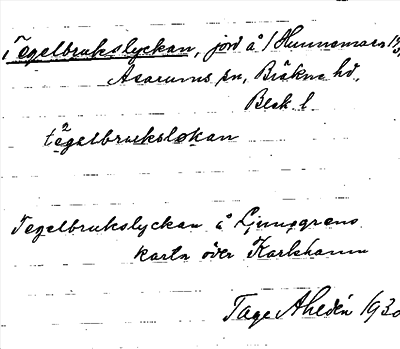 Tegelbrukslyckan, jord å 1 Hunnemara
Asarums sn, Bräkne hd,
Blek l.
te²galbrukslokan
Tegelbrukslyckan å Ljunggrens
karta över Karlshamn
Tage Ahldén 1930